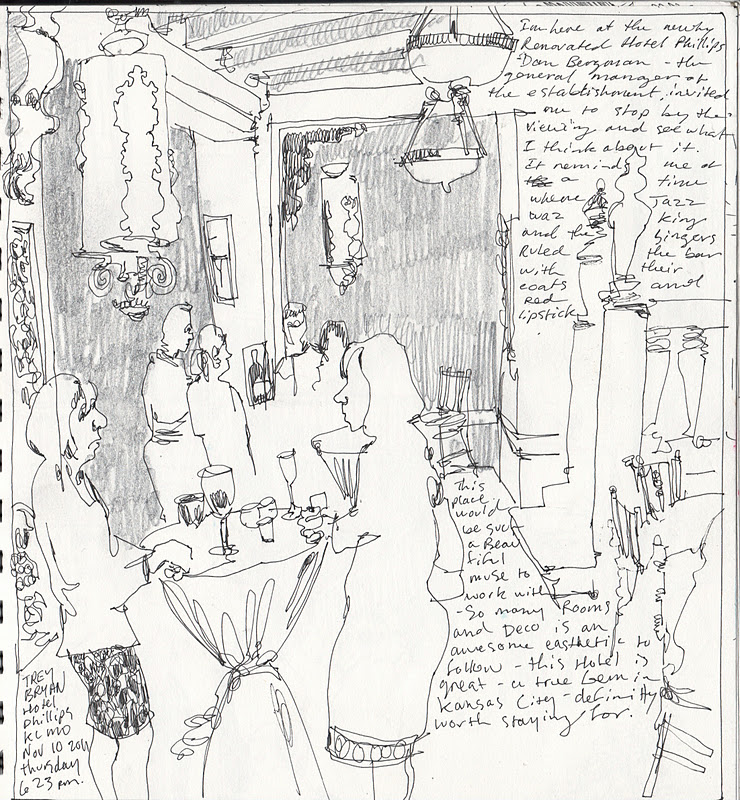 I'm here at the newly
Renovated Hotel Phillips
Dan Bergman - the
general manager of
the establishment, invited
me to stop by the
viewing and see what
I think about it.
It reminds me of
a time
where Jazz
was king
and the singers
Ruled the bar
with their
coats and
red
lipstick.
This
place
would
be such
a Beau
tiful
muse to
work with
- So many Rooms
and Deco is an
awesome easthetic to
follow - this Hotel is
great - a true Gem in
Kansas City - definitly
worth staying for.
TREY
BRYAN
Hotel
Phillips
KC MO
Nov 10 2011
thursday
6:23 pm.